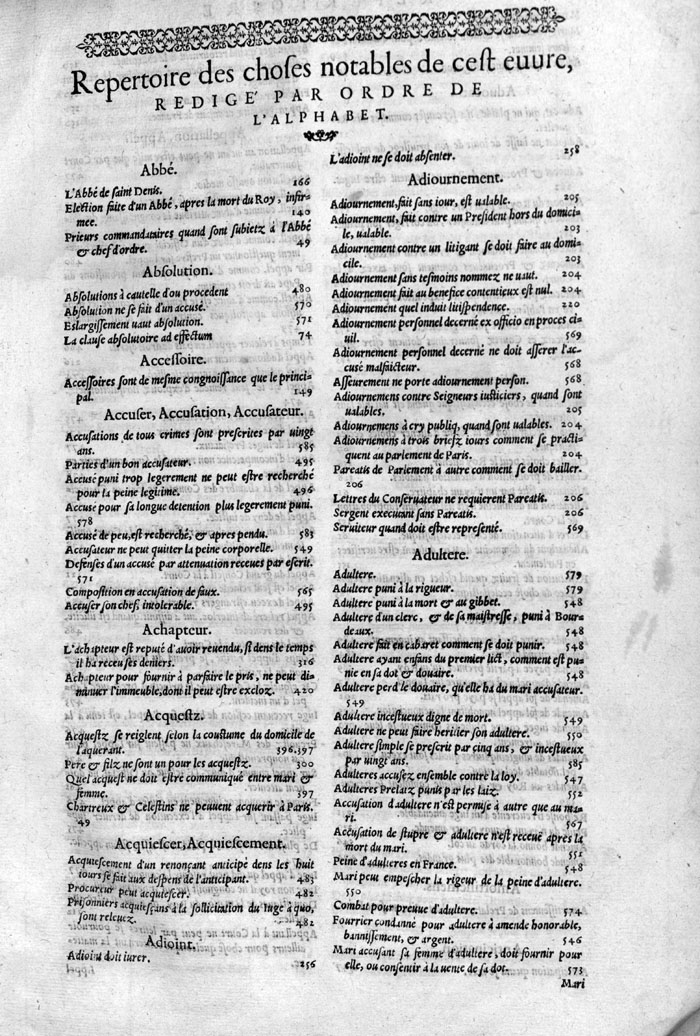 Repertoire des choses notables de cest euure,
REDIGE' PAR ORDRE DE
L'ALPHABET.
Abbé.
L'Abbé de saint Denis. 166
Election faite d'un Abbé, apres la mort du Roy, infir=
mee. 140
Prieurs commandataires quand sont subietz à l'Abbé
& chef d'ordre. 49
Absolution.
Absolutions à cautelle d'ou procedent 480
Absolution ne se fait d'un accusé. 570
Eslargissement uaut absolution. 571
La clause absolutoire ad effectum 74
Accessoire.
Accessoires sont de mesme congnoissance que le princi=
pal. 149
Accuser, Accusation, Accusateur.
Accusations de tous crimes sont prescrites par uingt
ans. 585
Parties d'un bon accusateur. 495
Accusé puni trop legerement ne peut estre recherché
pour la peine legitime. 496
Accusé pour sa longue detention plus legerement puni.
578
Accusé de peu, est recherché, & apres pendu. 583
Accusateur ne peut quitter la peine corporelle. 549
Defenses d'un accusé par attenuation receues par escrit.
571
Composition en accusation de faux. 565
Accuser son chef, intolerable. 495
Achapteur.
L'achapteur est reputé d'auoir reuendu, si dens le temps
il ha receu ses deniers. 316
Achapteur pour fournir à parfaire le pris, ne peut di=
minuer l'immeuble, dont il peut estre excloz. 420
Acquestz.
Acquestz se reiglent selon la coustume du domicile de
l'aquerant. 396.397
Pere & filz ne sont un pour les acquestz. 300
Quel acquest ne doit estre communiqué entre mari &
femme. 397
Chartreux & Celestins ne peuuent acquerir à Paris.
49
Acquiescer, Acquiescement.
Acquiescement d'un renonçant anticipé dens les huit
iours se fait aux despens de l'anticipant. 483
Procureur peut acquiescer. 482
Prisonniers acquiesçans à la sollicitation du iuge à quo,
sont releuez. 482
Adioint.
Adioint doit iurer. 256
L'adioint ne se doit absenter. 258
Adiournement.
Adiournement, fait sans iour, est ualable. 205
Adiournement, fait contre un President hors du domici=
le, ualable. 203
Adiournement contre un litigant se doit faire au domi=
cile. 203
Adiournement sans tesmoins nommez ne uaut. 204
Adiournement fait au benefice contentieux est nul. 204
Adiournement quel induit litispendence. 220
Adiournement personnel decerné ex officio en proces ci=
uil. 569
Adiournement personnel decerné ne doit asserer l'ac=
cusé malfaicteur. 568
Asseurement ne porte adiournement person. 568
Adiournemens contre Seigneurs iusticiers, quand sont
ualables. 205
Adiournemens à cry publiq, quand sont ualables. 204
Adiournemens à trois briefz iours comment se practi=
quent au parlement de Paris. 204
Pareatis de Parlement à autre comment se doit bailler.
206
Lettres du Conseruateur ne requierent Pareatis. 206
Sergent executant sans Pareatis. 206
Seruiteur quand doit estre representé. 569
Adultere.
Adultere. 579
Adultere puni à la rigueur. 579
Adultere puni à la mort & au gibbet. 548
Adultere d'un clerc, & de sa maistresse, puni à Bour=
deaux. 548
Adultere fait en cabaret comment se doit punir. 548
Adultere ayant enfans du premier lict, comment est pu=
nie en sa dot & douaire. 548
Adultere perd le douaire, qu'elle ha du mari accusateur.
549
Adultere incestueux digne de mort. 549
Adultere ne peut faire heritier son adultere. 550
Adultere simple se prescrit par cinq ans, & incestueux
par uingt ans. 585
Adulteres accusez ensemble contre la loy. 547
Adulteres Prelatz punis par les laiz. 552
Accusation d'adultere n'est permise à autre que au ma=
ri. 567
Accusation de stupre & adultere n'est receuë apres la
mort du mari. 551
Peine d'adulteres en France. 548
Mari peut empescher la rigeur de la peine d'adultere.
550
Combat pour preuue d'adultere. 574
Fourrier condanné pour adultere à amende honorable,
bannissement, & argent. 546
Mari accusant sa femme d'adultere, doit fournir pour
elle, ou consentir à la uente de sa dot. 573
Mari